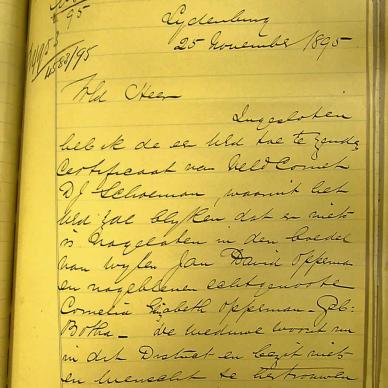 95
4583/95
Lydenburg
25 November 1895
Wld Heer
Ingesloten
heb ik de eer UEd toe te zenden
Certificaat van Veld Cornet
D J Schoeman, waaruit het
UEd zal blyken dat er niets
is nagelaten in den boedel
van wylen Jan David Opperman
en nagebleven echtgenoote
Cornelia Elizabeth Opperman - Geb:
Botha - de weduwe woont nu
in dit District en bezit niets
en wenscht te hertrouwen